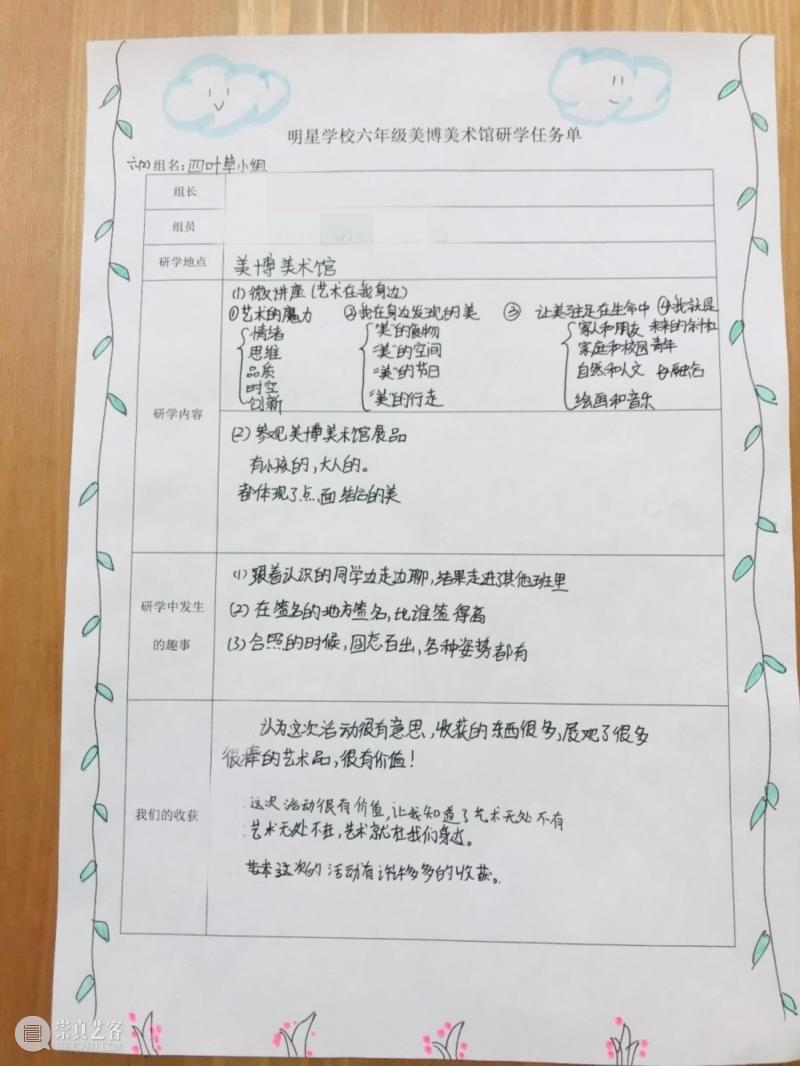 明星学校六年级美博美术馆研学任务单
六(2)组名：四叶草小组
组长
组员
研学地点 美博美术馆
研学内容
(1) 微讲座 (艺术在我身边)
①艺术的魔力 ②我在身边发现的美 ③ 让美驻足在生命中 ④我就是
情绪 "美"的食物 家人和朋友 未来的
思维 "美"的空间 家庭和校园 青年
品质 "美"的节日 自然和人文
时空
创新 "美"的行走 绘画和音乐
(2) 参观美博美术馆展品
有小孩的，大人的。
都体现了点、面结合的美
研学中发生
的趣事
(1) 跟着认识的同学边走边聊，结果走进了其他班里
(2) 在签名的地方签名，比谁签得高
(3) 合照的时候，囧态百出，各种姿势都有
我们的收获
认为这次活动很有意思，收获的东西很多，展观了很多
很棒的艺术品，很有价值！
这次活动很有价值，让我知道了艺术无处不有
艺术无处不在，艺术就在我们身边。
这次的活动有许许多多的收获。
崇真艺客